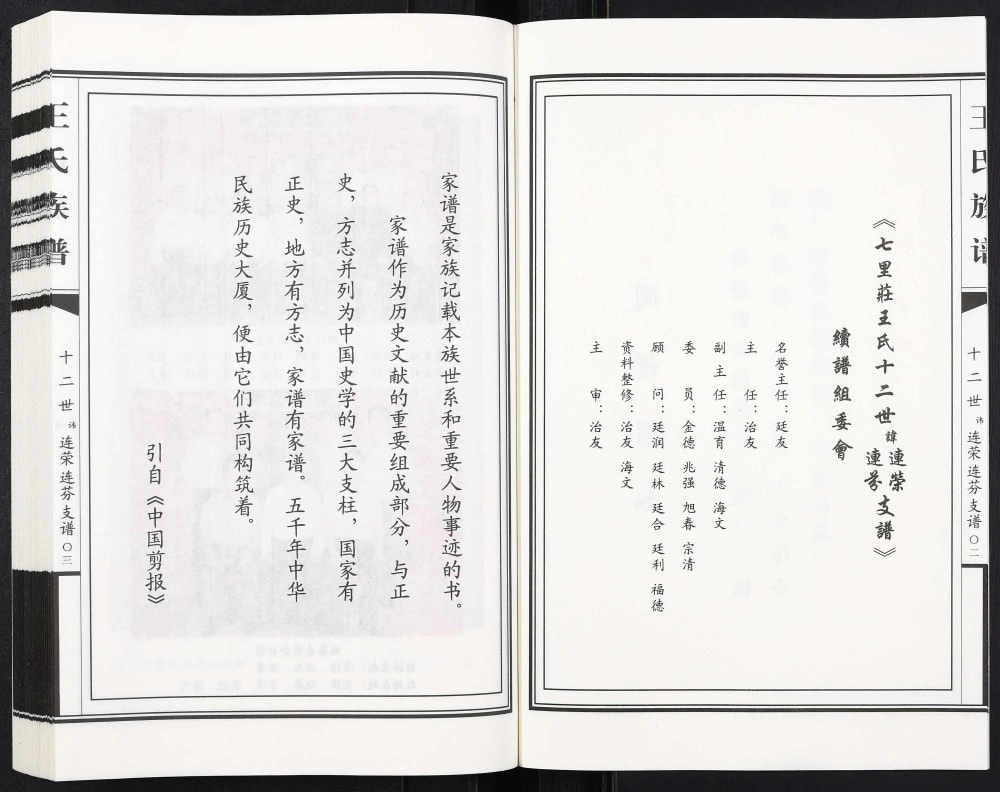 王氏族谱
十二世 讳 连荣 连芬 支谱 〇二
《七里莊王氏十二世 諱 連榮 連芬 支譜》
續譜組委會
名誉主任：廷友
主　　任：治友
副 主 任：温育 清德 海文
委　　员：金德 兆强 旭春 宗清
顾　　问：廷润 廷林 廷合 廷利 福德
资料整修：治友 海文
主　　审：治友
家谱是家族记载本族世系和重要人物事迹的书。
家谱作为历史文献的重要组成部分，与正
史，方志并列为中国史学的三大支柱，国家有
正史，地方有方志，家谱有家谱。五千年中华
民族历史大厦，便由它们共同构筑着。
引自《中国剪报》
王氏族谱
十二世 讳 连荣 连芬 支谱 〇三